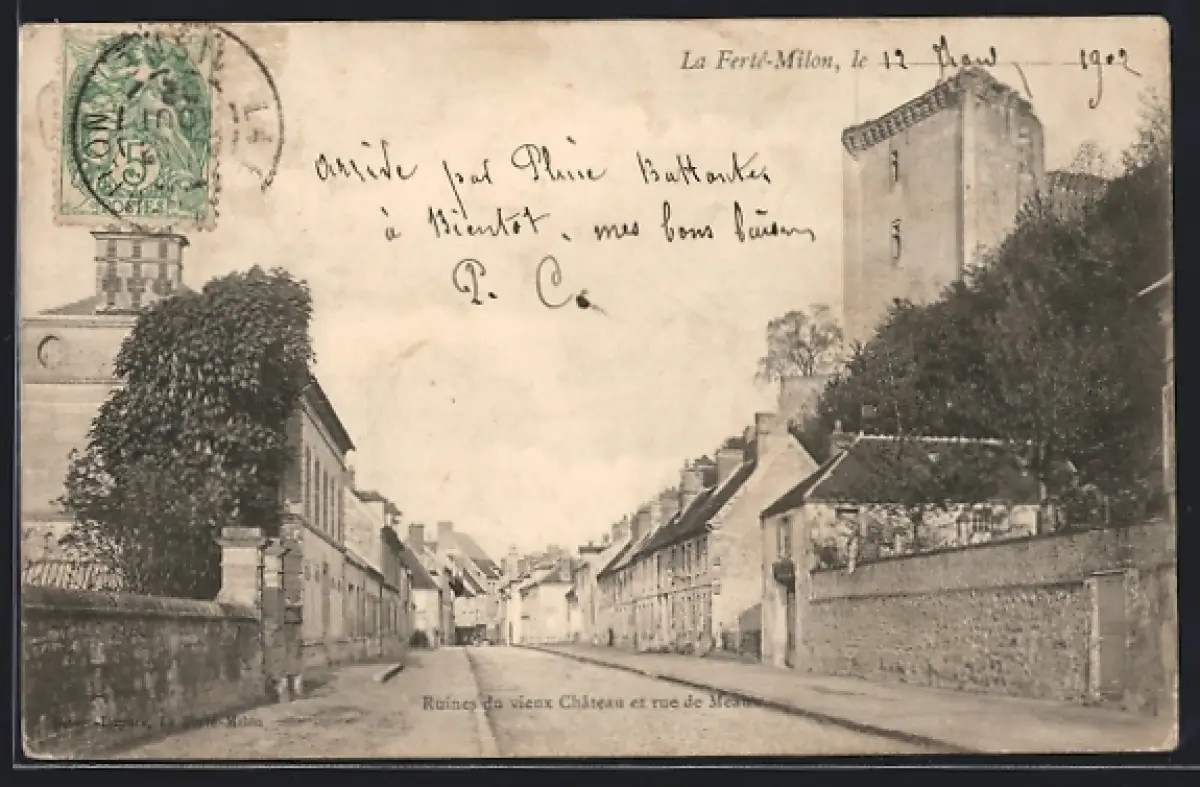 La Ferté-Milon, le 12 1902
arrivée par Pluie Battante
à Bientôt, mes bons baisers
P. C.
5
POSTES
Ruines du vieux Château et rue de Meaux
La Ferté-Milon